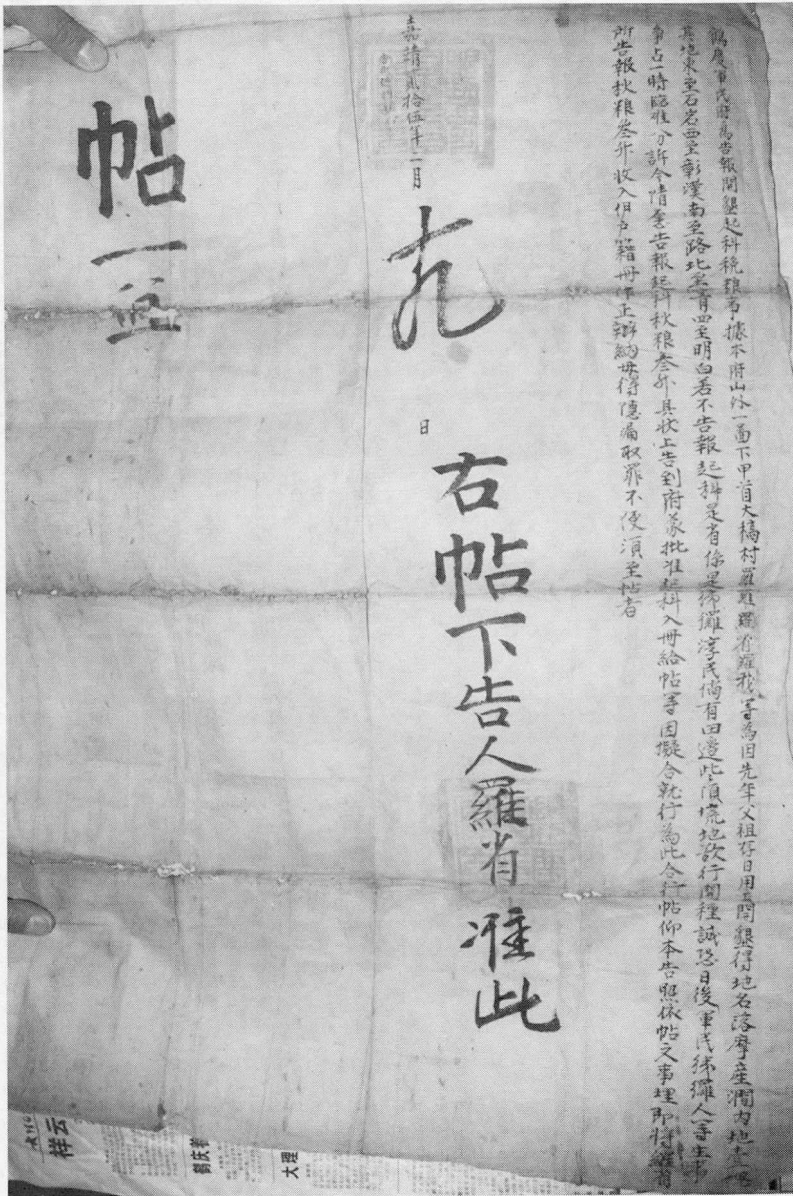 鶴慶軍民府為告報開墾起科稅粮事據本府山外一啚下甲首大楀村羅羅省羅我等為因先年父祖存日用工開墾得地名落摩產澗內地
其地東至石岩西至彰漢南至路北至四至明白若不告報起科是省係是倮儸淳民倘有田邊此頃荒地欲行開種誠恐日後軍民倮儸人等生事
爭占一時臨唯分訴今情愿告報起科秋粮叁升具狀上告到府蒙批准起科入冊給帖等因擬合就行為此合行帖仰本告照依帖文事理即將羅省
所告報秋粮叁升收入伊戶籍冊作正辦納毋得隱漏取罪不便須至帖者
右帖下告人羅省 准此
嘉靖貳拾伍年二月 日
帖
祥云
鶴庆
大理